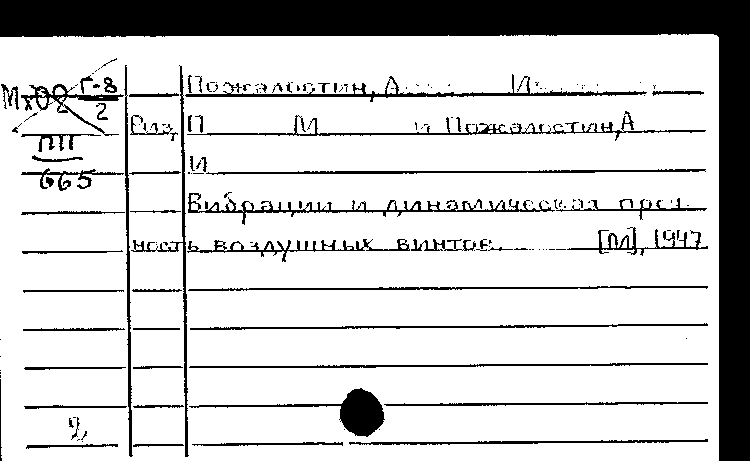 МхО8 Г-8/2
Пожалостин, А И
Риз, П М и Пожалостин, А
ПП
И
665
Вибрации и динамическая проч-
ность воздушных винтов. [М], 1947
2